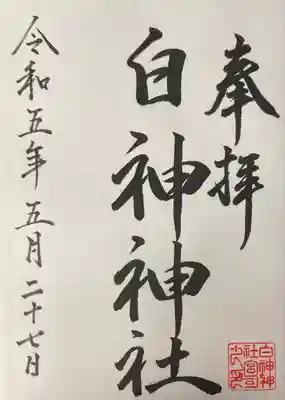 奉拝
白神神社
令和五年五月二十七日
白神神
社宮司
之印